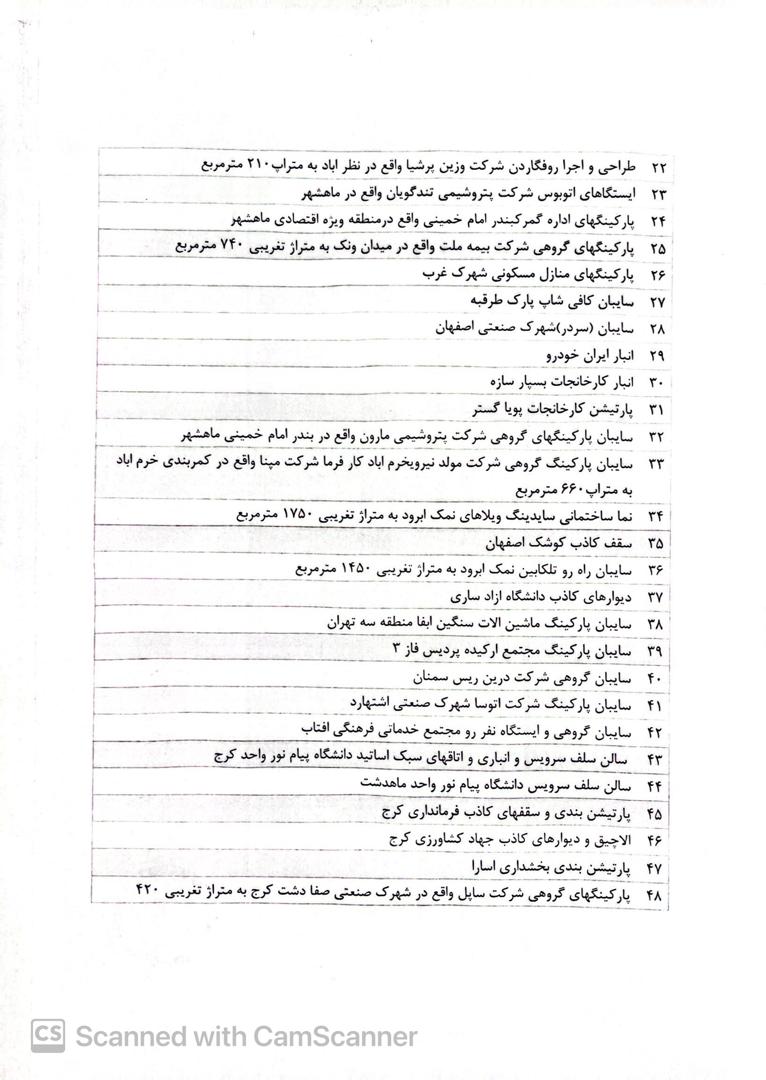 ۲۲ طراحی و اجرا روفگاردن شرکت وزین پرشیا واقع در نظر اباد به متراپ۲۱۰ مترمربع
۲۳ ایستگاهای اتوبوس شرکت پتروشیمی تندگویان واقع در ماهشهر
۲۴ پارکینگهای اداره گمرکبندر امام خمینی واقع درمنطقه ویژه اقتصادی ماهشهر
۲۵ پارکینگهای گروهی شرکت بیمه ملت واقع در میدان ونک به متراژ تغریبی ۷۴۰ مترمربع
۲۶ پارکینگهای منازل مسکونی شهرک غرب
۲۷ سایبان کافی شاپ پارک طرقبه
۲۸ سایبان (سردر)شهرک صنعتی اصفهان
۲۹ انبار ایران خودرو
۳۰ انبار کارخانجات بسپار سازه
۳۱ پارتیشن کارخانجات پویا گستر
۳۲ سایبان پارکینگهای گروهی شرکت پتروشیمی مارون واقع در بندر امام خمینی ماهشهر
۳۳ سایبان پارکینگ گروهی شرکت مولد نیرویخرم اباد کار فرما شرکت مپنا واقع در کمربندی خرم اباد
به متراپ۶۶۰ مترمربع
۳۴ نما ساختمانی سایدینگ ویلاهای نمک ابرود به متراژ تغریبی ۱۷۵۰ مترمربع
۳۵ سقف کاذب کوشک اصفهان
۳۶ سایبان راه رو تلکابین نمک ابرود به متراژ تغریبی ۱۴۵۰ مترمربع
۳۷ دیوارهای کاذب دانشگاه ازاد ساری
۳۸ سایبان پارکینگ ماشین الات سنگین ابفا منطقه سه تهران
۳۹ سایبان پارکینگ مجتمع ارکیده پردیس فاز ۳
۴۰ سایبان گروهی شرکت درین ریس سمنان
۴۱ سایبان پارکینگ شرکت اتوسا شهرک صنعتی اشتهارد
۴۲ سایبان گروهی و ایستگاه نفر رو مجتمع خدماتی فرهنگی افتاب
۴۳ سالن سلف سرویس و انباری و اتاقهای سبک اساتید دانشگاه پیام نور واحد کرج
۴۴ سالن سلف سرویس دانشگاه پیام نور واحد ماهدشت
۴۵ پارتیشن بندی و سقفهای کاذب فرمانداری کرج
۴۶ الاچیق و دیوارهای کاذب جهاد کشاورزی کرج
۴۷ پارتیشن بندی بخشداری اسارا
۴۸ پارکینگهای گروهی شرکت ساپل واقع در شهرک صنعتی صفا دشت کرج به متراژ تغریبی ۴۲۰
CS Scanned with CamScanner